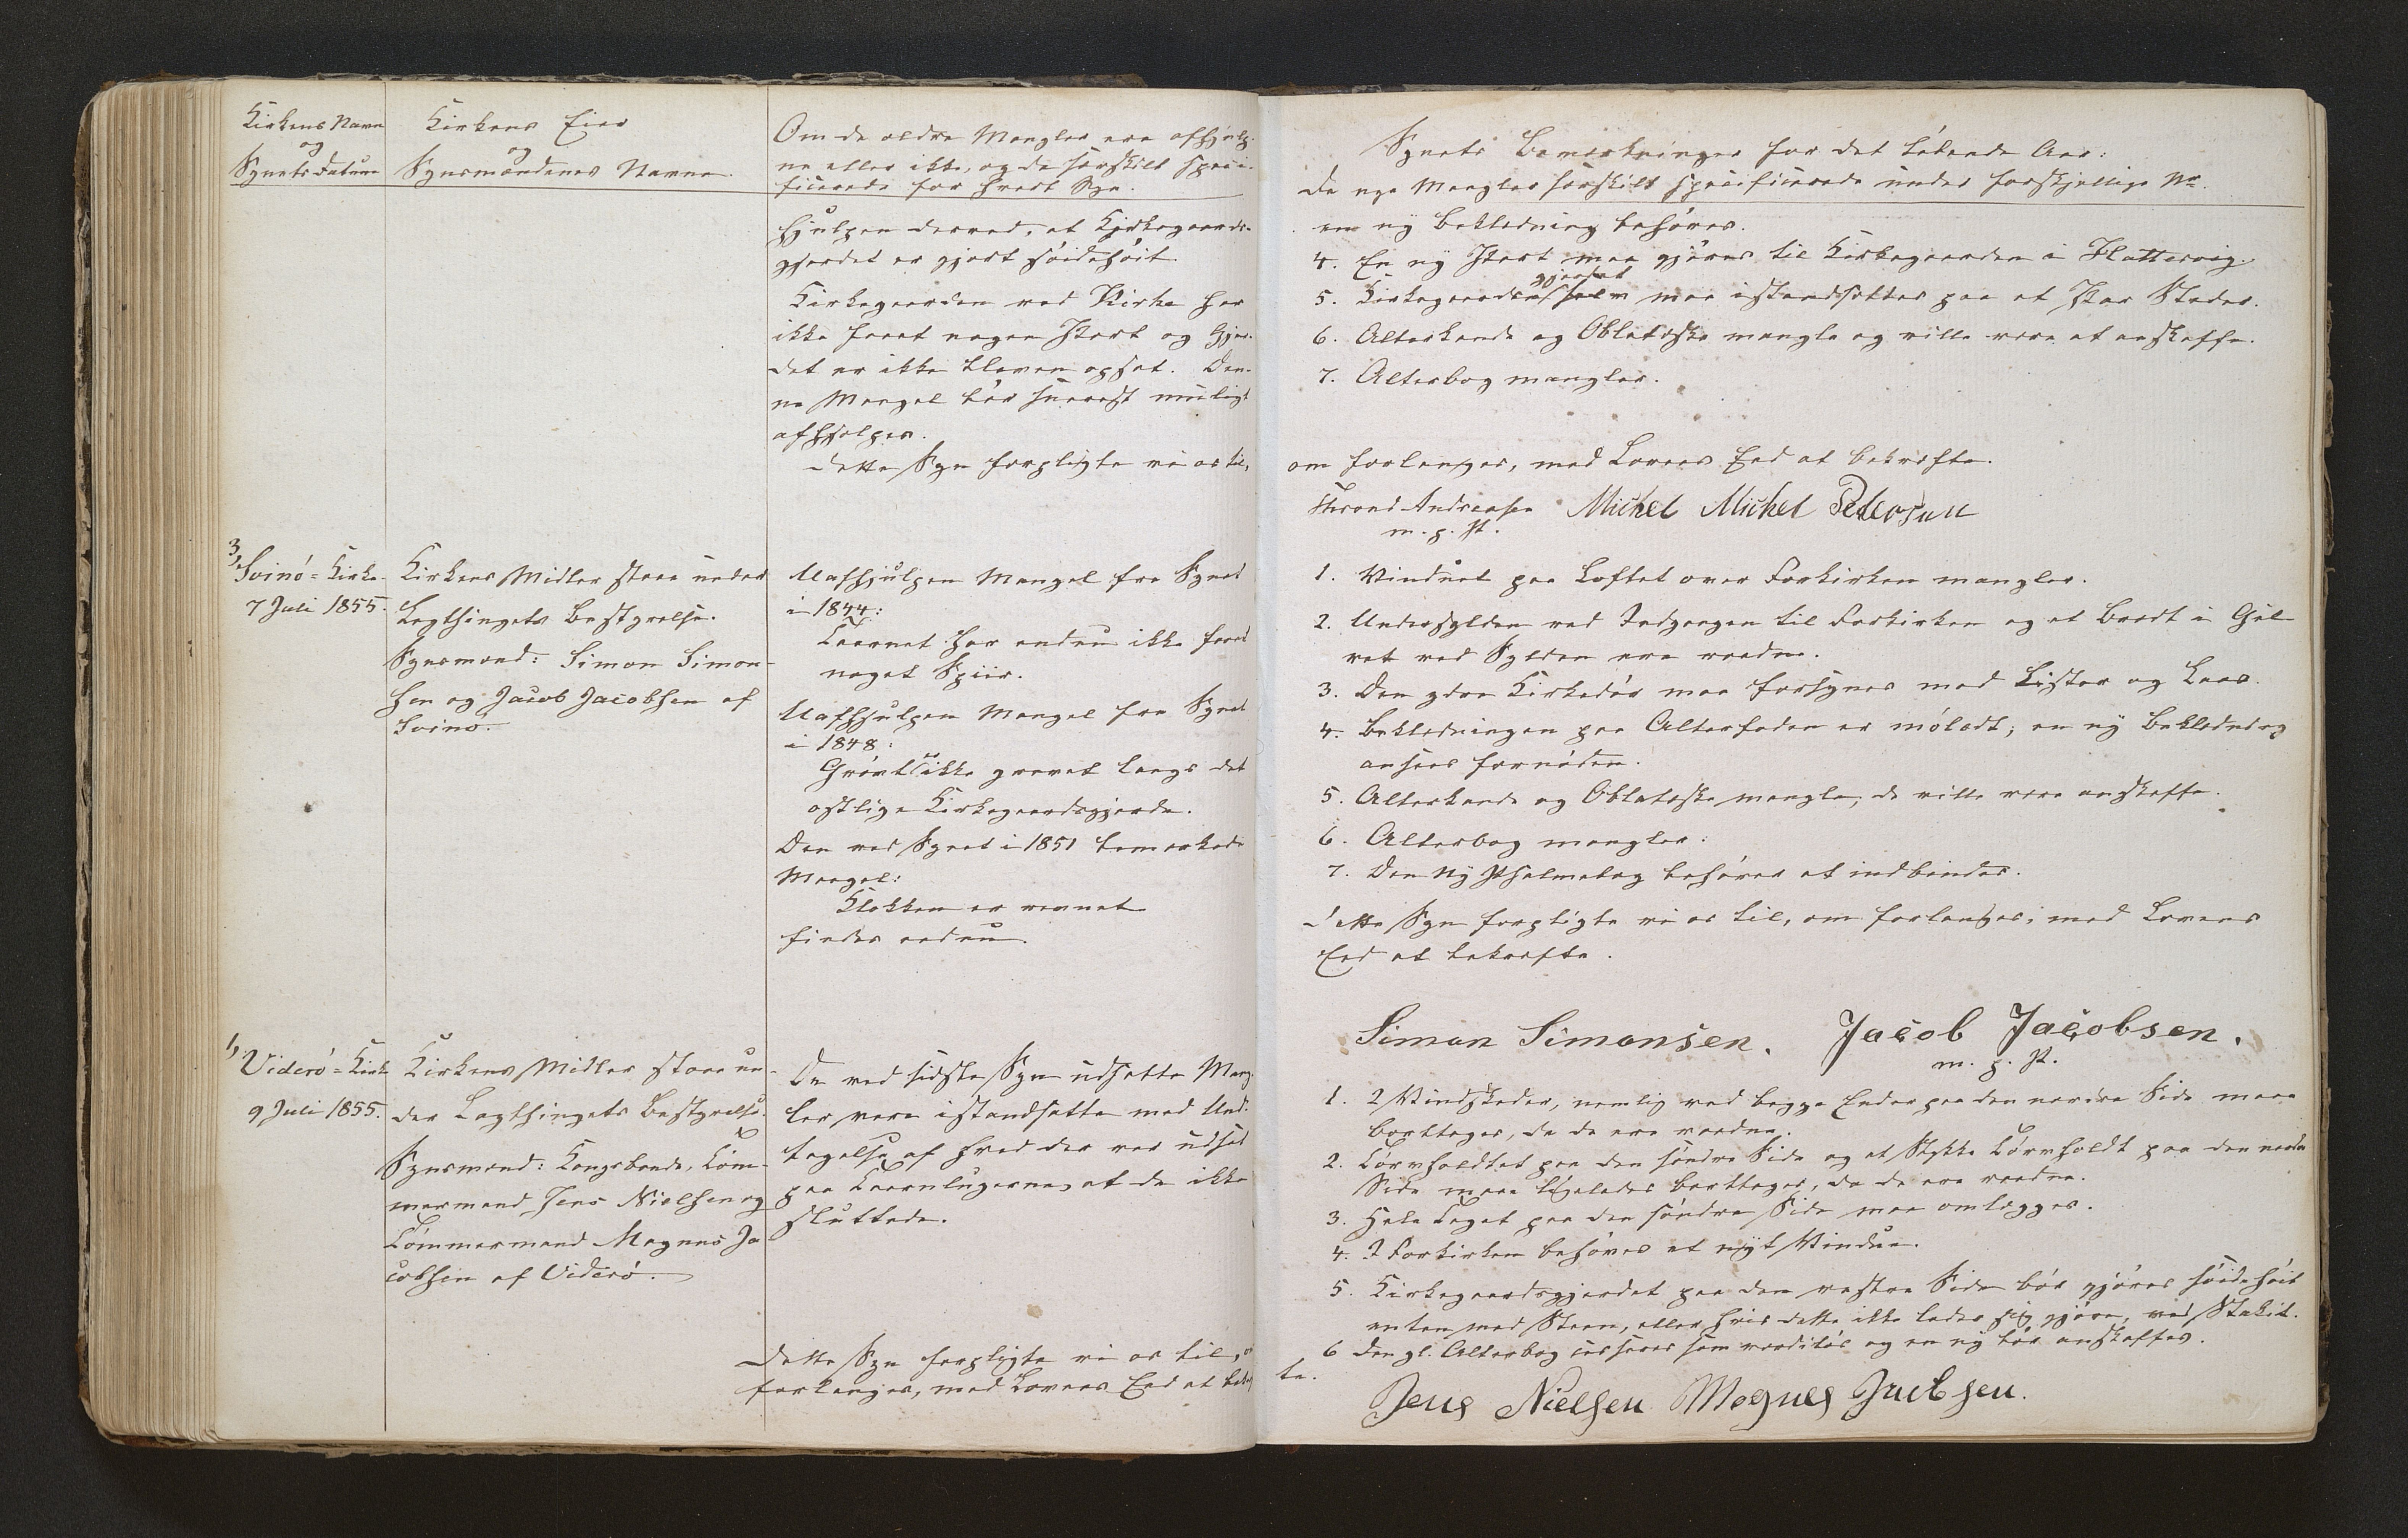 Kirkens Navn
og
Synets Datum
Kirkens Eier
og
Synsmændenes Navne
Om de ældre Mangler ere afhjulp-
ne eller ikke, og de særskilt speci-
ficerede for hvert Syn.
hjulpen derved, at Kirkegaards-
gjerdet er gjort høidehøit.
Kirkegaarden ved Kirke har
ikke faaet nogen Port og Gjer-
det er ikke bleven opsat. Den-
ne Mangel bør snarest muligt
afhjelpes.
Dette Syn forpligte vi os til,
3,
Svinö-Kirke
7 Juli 1855.
Kirkens Midler staae under
Lagthingets Bestyrelse.
Synsmænd: Simon Simon-
sen og Jacob Jacobsen af
Svinö.
Uafhjulpen Mangel fra Synet
i 1844:
Taarnet har endnu ikke faaet
noget Spiir.
Uafhjulpen Mangel fra Synet
i 1848:
Grøvt er ikke gravet langs det
østlige Kirkegaardsgjerde.
Den ved Synet i 1851 bemærkede
Mangel:
Klokken er revnet
findes endnu.
1,
Viderö-Kirke
9 Juli 1855.
Kirkens Midler staae un-
der Lagthingets Bestyrelse.
Synsmænd: Kongsbonde, Töm-
mermand Jens Nielsen og
Tömmermand Magnus Ja
cobsen af Viderö.
De ved sidste Syn udsatte Mang-
ler vare istandsatte med Und-
tagelse af hvad der var udsat
paa Taarnlugerne, at de ikke
sluttede.
Dette Syn forpligte vi os til, om
forlanges, med Lovens Eed at bekræf
Synets Bemærkninger for det løbende Aar:
de nye Mangler særskilt specificerede under forskjellige No.
en ny Beklædning behøves.
4. En ny Port maa gjøres til Kirkegaarden i Hattervig.
gjerdet
5. Kirkegaards maa istandsættes paa et Par Steder.
6. Alterkande og Oblatæske mangle og ville være at anskaffe.
7. Alterbog mangler.
om forlanges, med Lovens Eed at bekræfte.
Thrond Andreasen Michel Michel Pedersen
m. p. P.
1. Vinduet paa Loftet over Forkirken mangler.
2. Undersylden ved Indgangen til Forkirken og et Brædt i Gul-
vet ved Sylden ere raadne.
3. Den ydre Kirkedør maa forsynes med Lister og Laas.
4. Beklædningen paa Alterfoden er mølædt; en ny Beklædning
ansees fornøden.
5. Alterkande og Oblatæske mangle; de ville være anskaffe.
6. Alterbog mangler.
7. Den ny Psalmebog behøver at indbindes.
Dette Syn forpligte vi os til, om forlanges, med Lovens
Eed at bekræfte.
Simon Simonsen. Jacob Jacobsen.
m. p. P.
1. 2 Vindskeder, nemlig ved begge Ender paa den nordre Side maae
borttages, da de ere raadne.
2. Törvholdtet paa den søndre Side og et Stykke Törvholdt paa den nordre
Side maae ligeledes borttages, da de ere raadne.
3. Hele Taget paa den søndre Side maa omlægges.
4. I Forkirken behøves et nyt Vindue.
5. Kirkegaardsgjerdet paa den vestre Side bør gjøres høidehøit
enten med Steen, eller hvis dette ikke lader sig gjøre, ved Stakit.
6 Den gl. Alterbog ansees som værdiløs og en ny bør anskaffes.
te.
Jens Nielsen Magnus Jacobsen.